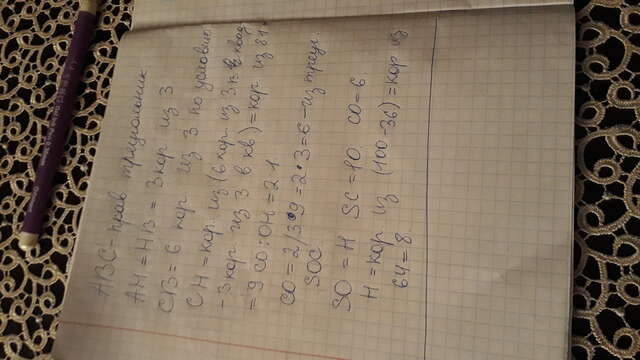 ABC - прав треугольник
AH = HB = 3кор из 3
CB = 6 кор из 3 по условию
CH = кор из (6 кор из 3 в квад
- 3 кор из 3 в кв) = кор из 81
= 9 CO : OH = 2 1
CO = 2/3 • 9 = 2 • 3 = 6 - из треуг.
SOC
SO = H SC = 10 CO = 6
H = кор из (100 - 36) = кор из
64 = 8.